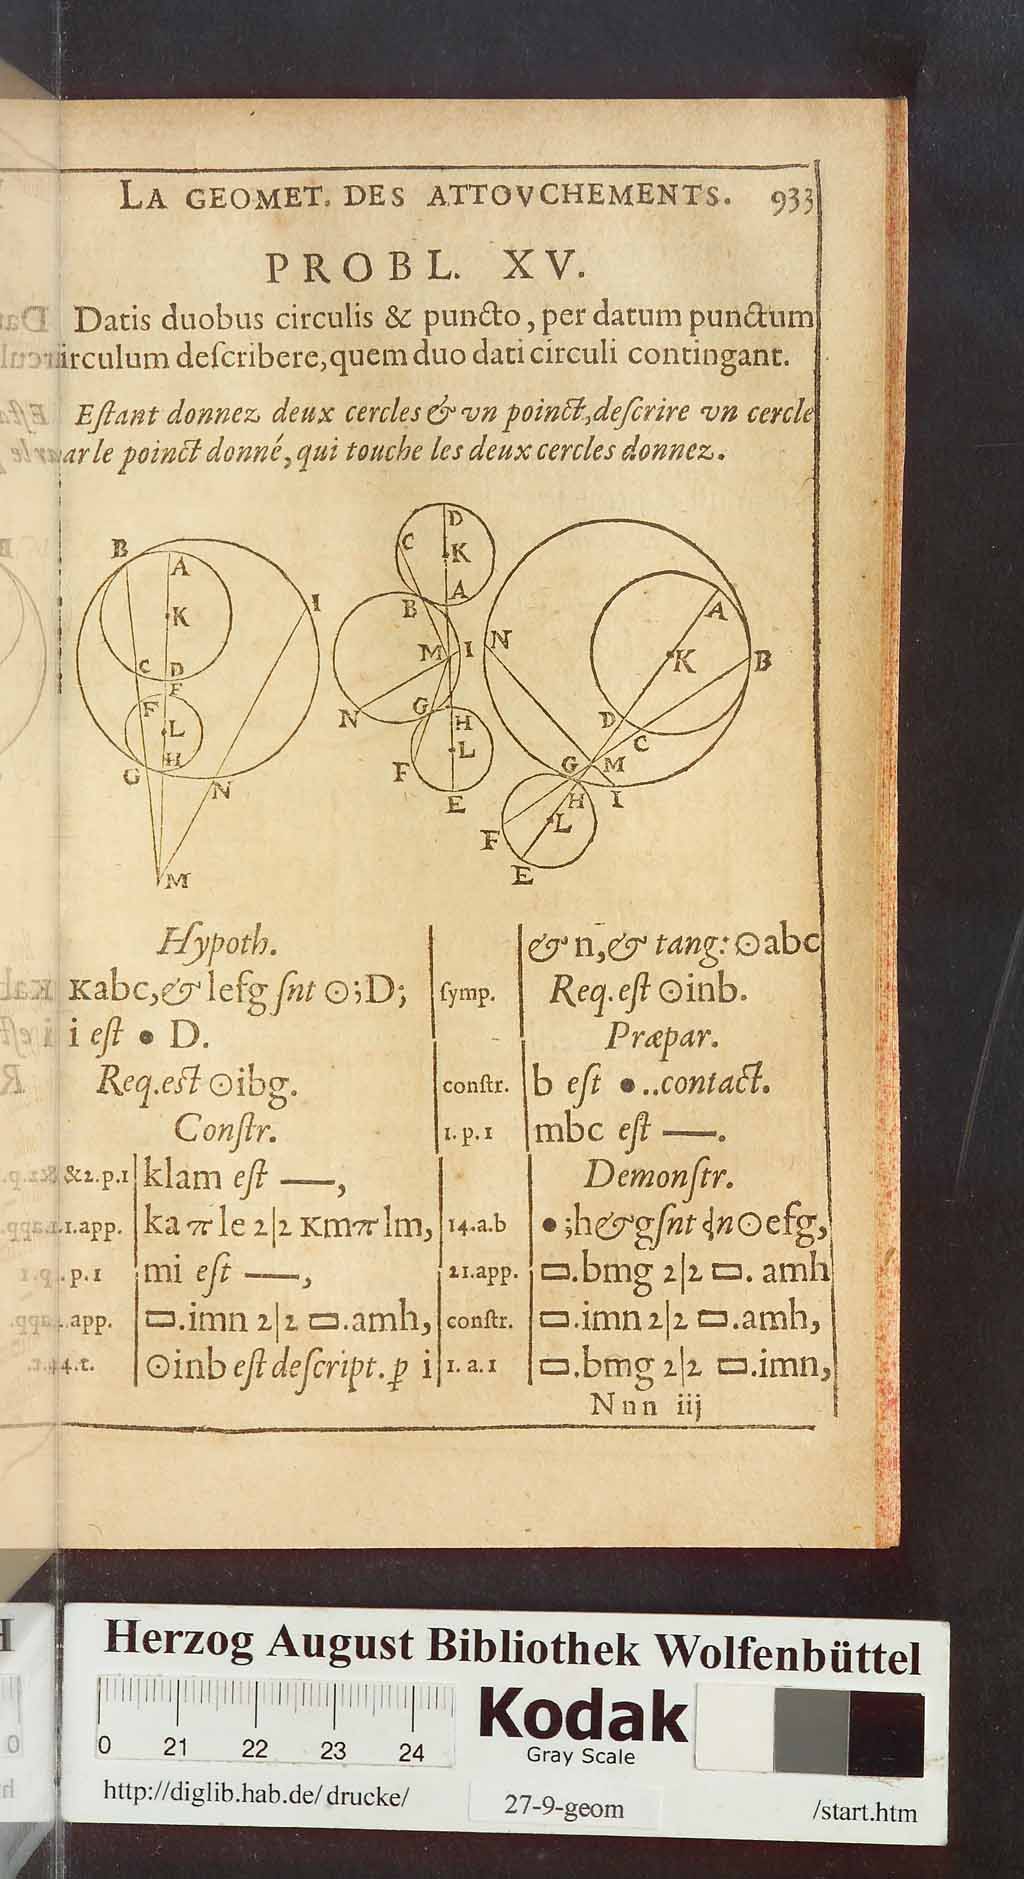 LA GEOMET. DES ATTOVCHEMENTS. 933
PROBL. XV.
Datis duobus circulis & puncto, per datum punctum
circulum deſcribere, quem duo dati circuli contingant.
Eſtant donnez deux cercles & vn poinct, deſcrire vn cercle
par le poinct donné, qui touche les deux cercles donnez.
B A K I C D F F L H G N M
D C K A B M I N G H L F E
N A K B D C G M H I L F E
Hypoth.
Kabc, & lefg ſnt ⊙;D;
i eſt • D.
Req. eſt ⊙ibg.
Conſtr.
&2.p.1 klam eſt —,
1.app. ka π le 2|2 Km π lm,
1.p.1 mi eſt —,
.app. ▭.imn 2|2 ▭.amh,
4.t. ⊙inb eſt deſcript. p i
& n, & tang: ⊙abc
ſymp. Req. eſt ⊙inb.
Præpar.
conſtr. b eſt •..contact.
1.p.1 mbc eſt —.
Demonſtr.
14.a.b •;h & g ſnt in ⊙efg,
21.app. ▭.bmg 2|2 ▭. amh
conſtr. ▭.imn 2|2 ▭.amh,
1.a.1 ▭.bmg 2|2 ▭.imn,
Nnn iij
Herzog August Bibliothek Wolfenbüttel
0 21 22 23 24
Kodak
Gray Scale
http://diglib.hab.de/drucke/ 27-9-geom /start.htm